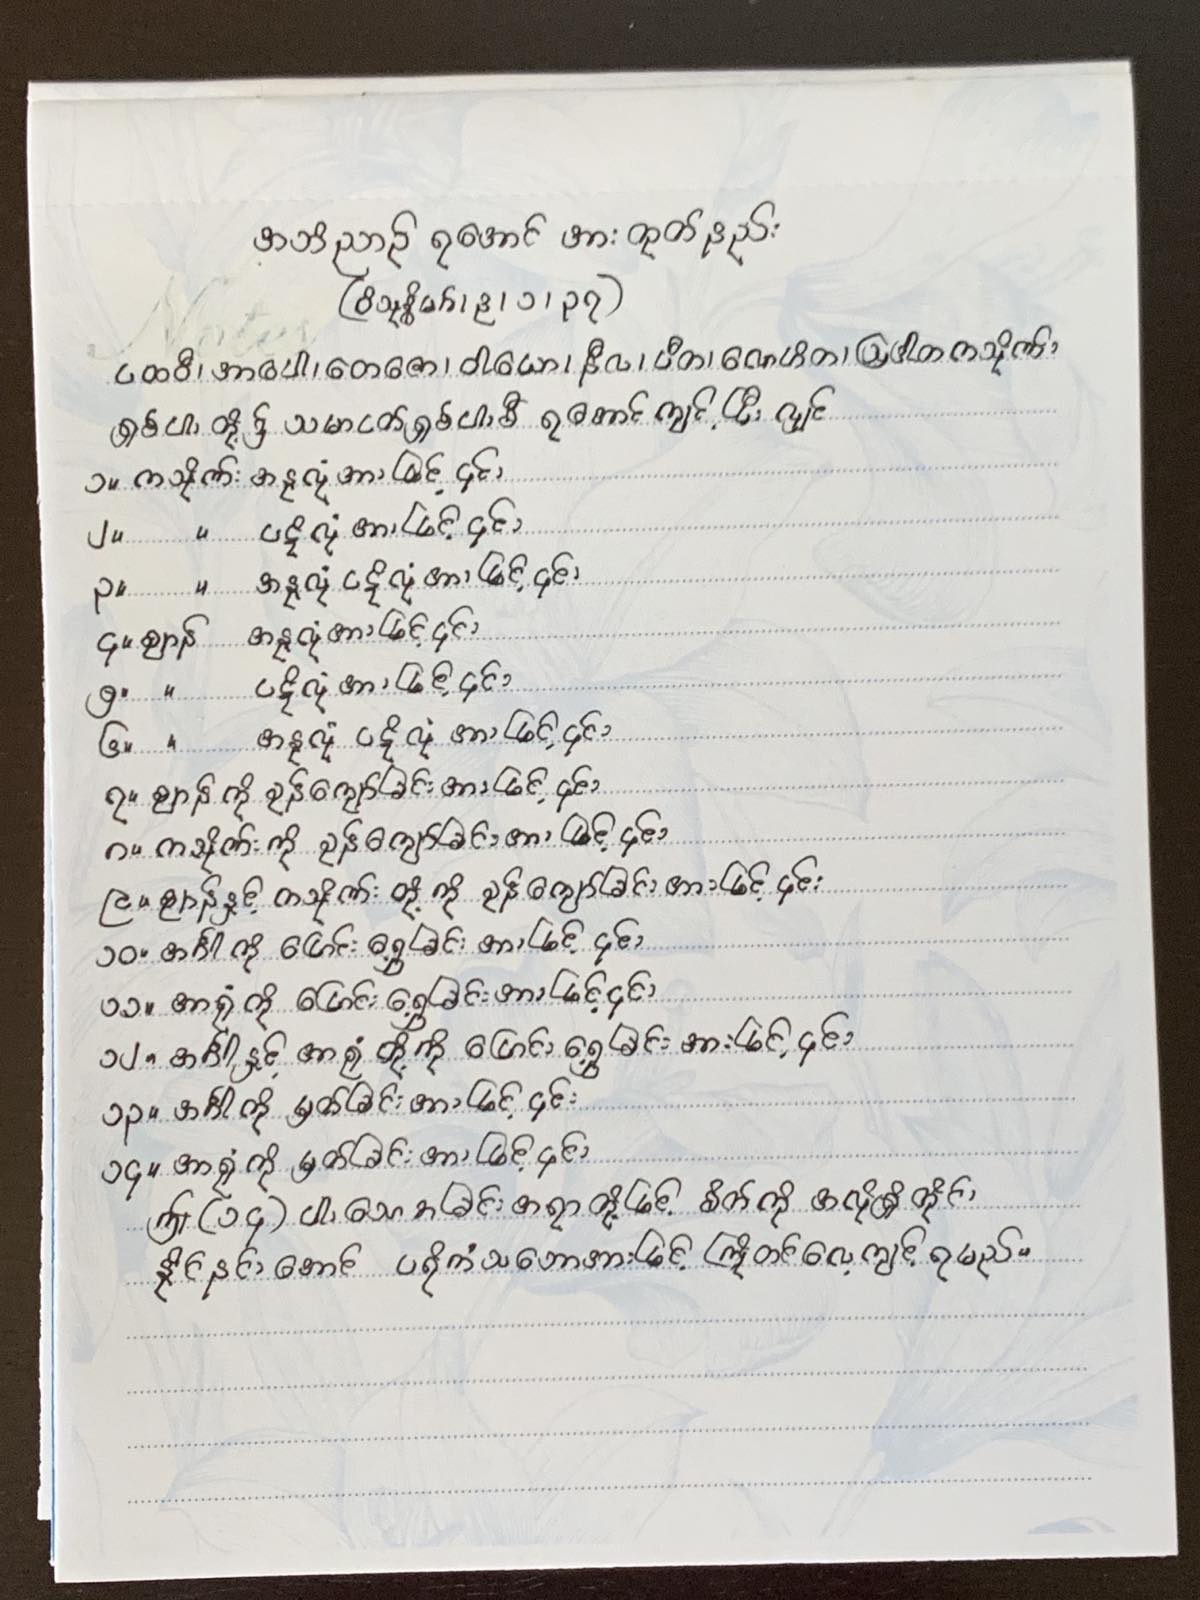 အဘိညာဉ် ရအောင် အားထုတ်နည်း
(ဝိသုဒ္ဓိမဂ်၊ ဋ္ဌ၊ ၁၊ ၃၇)
ပထဝီ၊ အာပေါ၊ တေဇော၊ ဝါယော၊ နီလ၊ ပီတ၊ လောဟိတ၊ ဩဒါတ ကသိုဏ်း
ရှစ်ပါး တို့၌ သမာပတ်ရှစ်ပါးစီ ရအောင် ကျင့်ပြီးလျှင်
၁။ ကသိုဏ်း အနုလုံအားဖြင့်၎င်း
၂။ " ပဋိလုံအားဖြင့်၎င်း
၃။ " အနုလုံ ပဋိလုံအားဖြင့်၎င်း
၄။ ဈာန် အနုလုံအားဖြင့်၎င်း
၅။ " ပဋိလုံအားဖြင့်၎င်း
၆။ " အနုလုံ ပဋိလုံ အားဖြင့်၎င်း
၇။ ဈာန်ကို ခုန်ကျော်ခြင်းအားဖြင့်၎င်း
၈။ ကသိုဏ်းကို ခုန်ကျော်ခြင်းအားဖြင့်၎င်း
၉။ ဈာန်နှင့် ကသိုဏ်း တို့ကို ခုန်ကျော်ခြင်းအားဖြင့်၎င်း
၁၀။ အင်္ဂါကို ပြောင်းရွှေ့ခြင်းအားဖြင့်၎င်း
၁၁။ အာရုံကို ပြောင်းရွှေ့ခြင်းအားဖြင့်၎င်း
၁၂။ အင်္ဂါနှင့် အာရုံတို့ကို ပြောင်းရွှေ့ခြင်းအားဖြင့်၎င်း
၁၃။ အင်္ဂါကို မှတ်ခြင်းအားဖြင့်၎င်း
၁၄။ အာရုံကို မှတ်ခြင်းအားဖြင့်၎င်း
ဤ (၁၄) ပါးသော အခြင်းအရာတို့ဖြင့် စိတ်ကို အလိုရှိတိုင်း
နိုင်နင်းအောင် ပရိကံသဘောအားဖြင့် ကြိုတင်လေ့ကျင့်ရမည်။